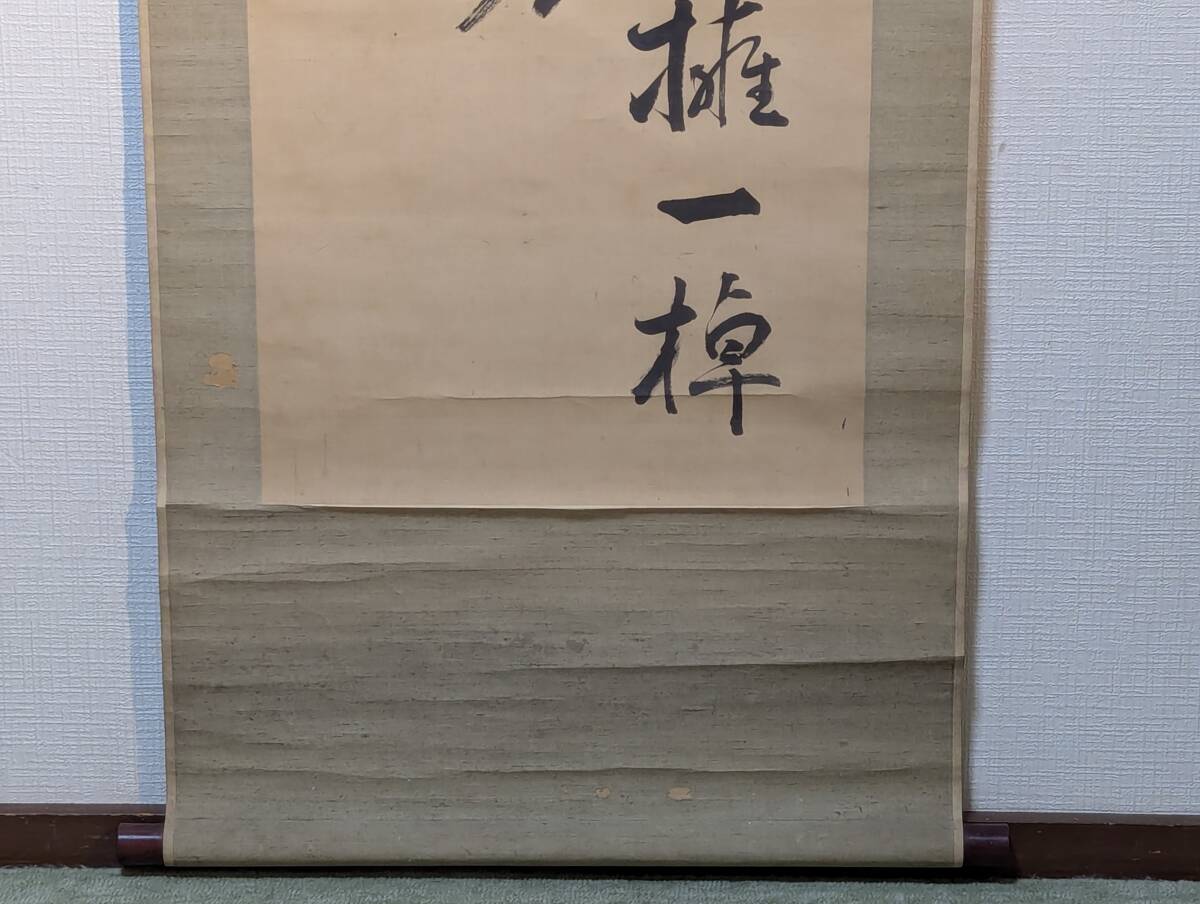 擁一棹